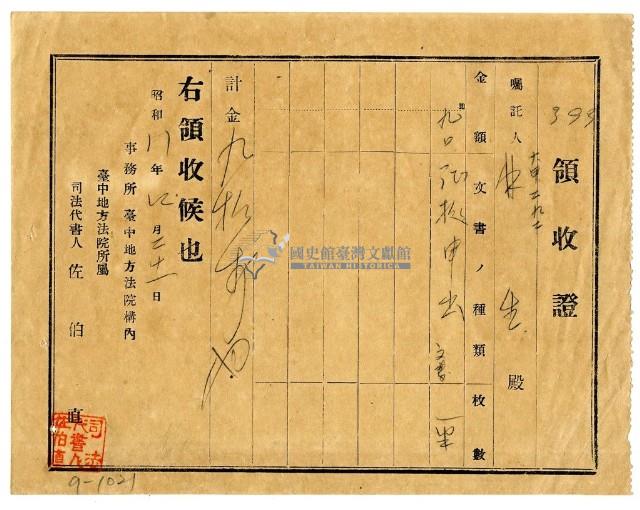 393
領收證
大甲
囑託人 林 生 殿
金額 文書ノ種類 枚數
九〇 抵 申出 文書 一
計金九拾 也
右領收候也
昭和 八年 月二十一日
事務所 臺中地方法院構內
臺中地方法院所屬
司法代書人 佐伯 直
司法代書人佐伯直
9-1021
國史館臺灣文獻館
TAIWAN HISTORICA